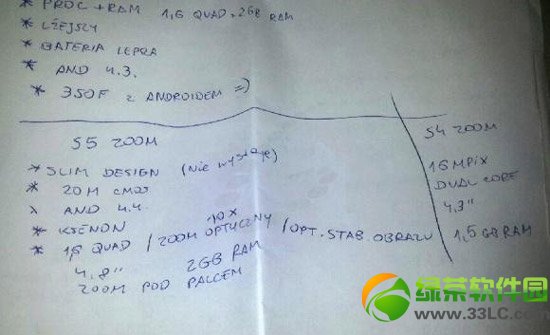 * PROC + RAM 1,6 QUAD, 2GB RAM
* LŻEJSZY
* BATERIA LEPSZA
* AND 4.3.
* 350F z ANDROIDEM =)
S5 ZOOM
* SLIM DESIGN (Nie wystaje)
* 20M CMOS
* AND 4.4.
* KSENON
* 1,6 QUAD / ZOOM OPTYCZNY 10X / OPT. STAB. OBRAZU
4.8" 2GB RAM
ZOOM POD PALCEM
S4 ZOOM
16MPIX
DUAL CORE
4,3"
1,5 GB RAM
绿茶软件园
www.33LC.com